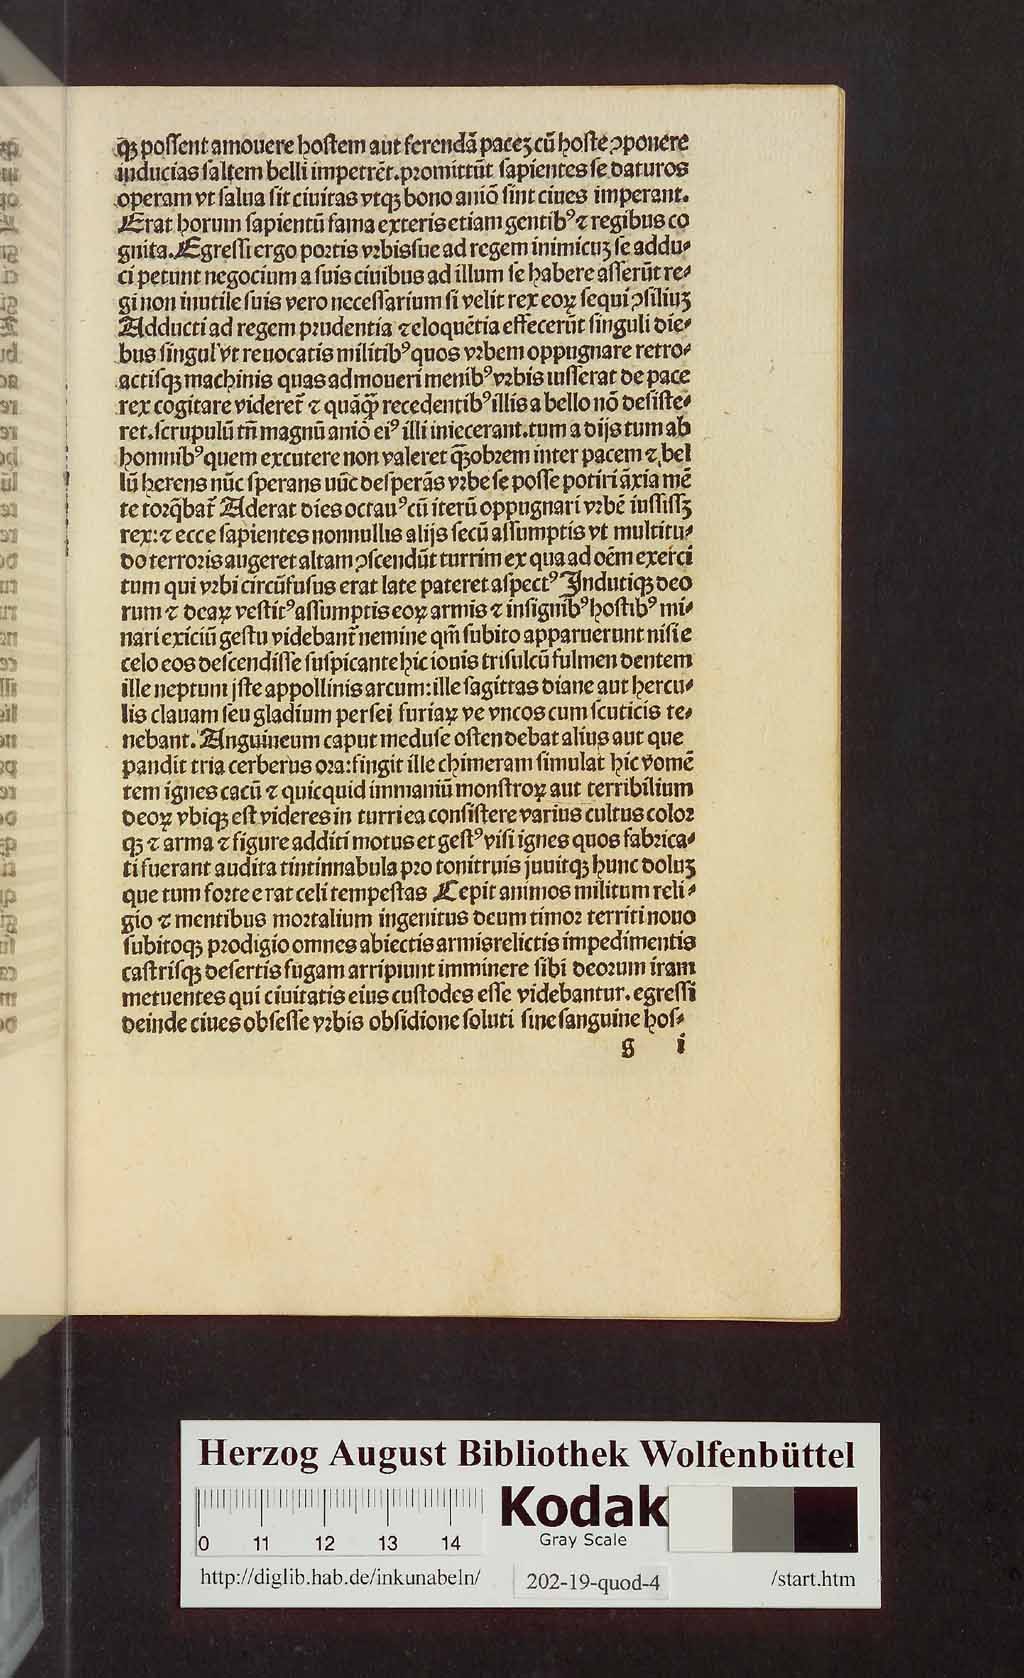 qꝫ poſſent amouere hoſtem aut ferendã paceꝫ cũ hoſte ꝯponere
inducias ſaltem belli impetrẽt. promittũt ſapientes ſe daturos
operam vt ſalua ſit ciuitas vtqꝫ bono aniõ ſint ciues imperant.
Erat horum ſapientũ fama exteris etiam gentibꝰ ⁊ regibus co
gnita. Egreſſi ergo portis vrbis ſue ad regem inimicuꝫ ſe addu⸗
ci petunt negocium a ſuis ciuibus ad illum ſe habere aſſerũt re⸗
gi non inutile ſuis vero neceſſarium ſi velit rex eoꝝ ſequi ꝯſiliuꝫ
Adducti ad regem prudentia ⁊ eloquẽtia effecerũt ſinguli die⸗
bus ſingul' vt reuocatis militibꝰ quos vrbem oppugnare retro⸗
actiſqꝫ machinis quas admoueri menibꝰ vrbis iuſſerat de pace
rex cogitare videret̃ ⁊ quãqꝫ̃ recedentibꝰ illis a bello nõ deſiſte⸗
ret. ſcrupulũ tñ magnũ aniõ eiꝰ illi iniecerant. tum a dijs tum ab
homnibꝰ quem excutere non valeret qꝫobrem inter pacem ⁊ bel
lũ herens nũc ſperans nũc deſperãs vrbe ſe poſſe potiri ãxia mẽ
te torq̃bat̃ Aderat dies octauꝰ cũ iterũ oppugnari vrbẽ iuſſiſſꝫ
rex: ⁊ ecce ſapientes nonnullis alijs ſecũ aſſumptis vt multitu⸗
do terroris augeret altam ꝯſcendũt turrim ex qua ad oẽm exerci
tum qui vrbi circũfuſus erat late pateret aſpectꝰ Indutiqꝫ deo
rum ⁊ deaꝝ veſtitꝰ aſſumptis eoꝝ armis ⁊ inſignibꝰ hoſtibꝰ mi⸗
nari exiciũ geſtu videbant̃ nemine qm̃ ſubito apparuerunt niſi e
celo eos deſcendiſſe ſuſpicante hic iouis triſulcũ fulmen dentem
ille neptuni jſte appollinis arcum: ille ſagittas diane aut hercu⸗
lis clauam ſeu gladium perſei furiaꝝ ve vncos cum ſcuticis te⸗
nebant. Anguineum caput meduſe oſtendebat alius aut que
pandit tria cerberus ora: fingit ille chimeram ſimulat hic vomẽ
tem ignes cacũ ⁊ quicquid immaniũ monſtroꝝ aut terribilium
deoꝝ vbiqꝫ eſt videres in turri ea conſiſtere varius cultus color
qꝫ ⁊ arma ⁊ figure additi motus et geſtꝰ viſi ignes quos fabrica⸗
ti fuerant audita tintinnabula pro tonitruis juuitqꝫ hunc doluꝫ
que tum forte erat celi tempeſtas Cepit animos militum reli⸗
gio ⁊ mentibus mortalium ingenitus deum timor territi nouo
ſubitoqꝫ prodigio omnes abiectis armis relictis impedimentis
caſtriſqꝫ deſertis fugam arripiunt imminere ſibi deorum iram
metuentes qui ciuitatis eius cuſtodes eſſe videbantur. egreſſi
deinde ciues obſeſſe vrbis obſidione ſoluti ſine ſanguine hoſ⸗
g i
Herzog August Bibliothek Wolfenbüttel
Kodak
Gray Scale
0 11 12 13 14
http://diglib.hab.de/inkunabeln/ 202-19-quod-4 /start.htm